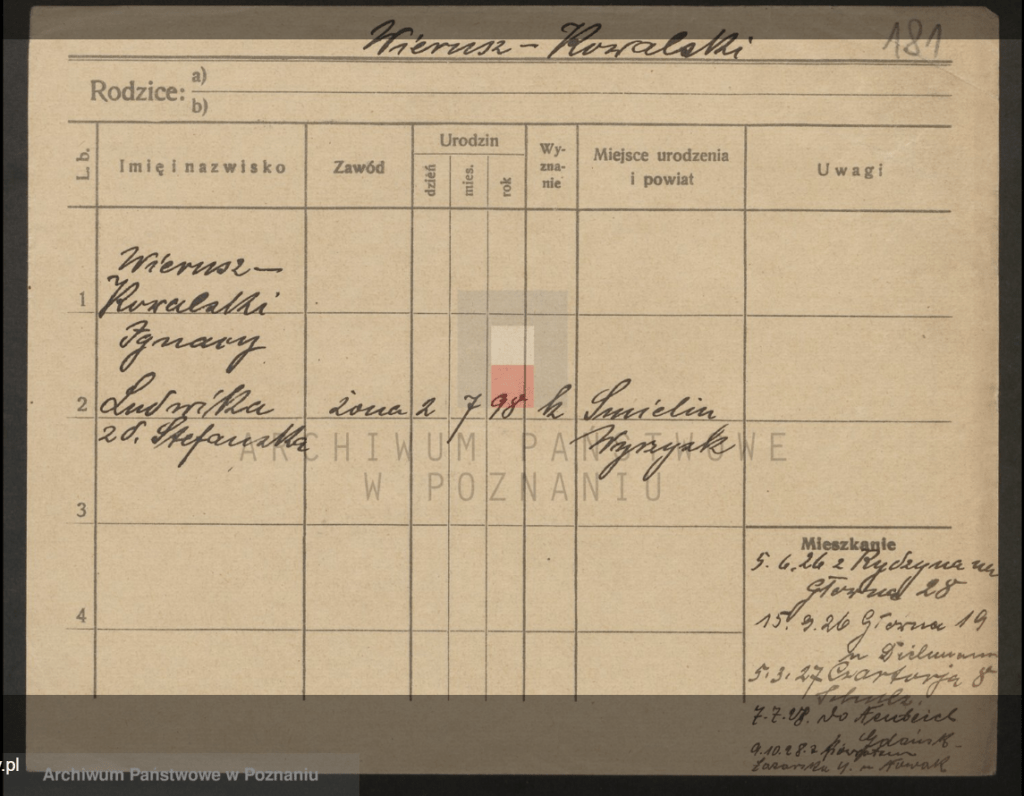 Wierusz-Kowalski
181
Rodzice: a)
b)
L. b.
Imię i nazwisko
Zawód
Urodzin
dzień
mies.
rok
Wy-
zna-
nie
Miejsce urodzenia
i powiat
Uwagi
1
Wierusz-
Kowalski
Ignacy
2
Ludwika żona 2 7 98 k Smielin
zd. Stefanska Wyrzysk
ARCHIWUM PAŃSTWOWE
W POZNANIU
3
4
Mieszkanie
5.6.26 z Rydzyna na
Głowna 28
15.9.26 Głowna 19
5.3.27 Czartorja 8
Schulz.
7.7.28. do
Gdańsk-
9.10.28. z
Nowak
y.pl
Archiwum Państwowe w Poznaniu